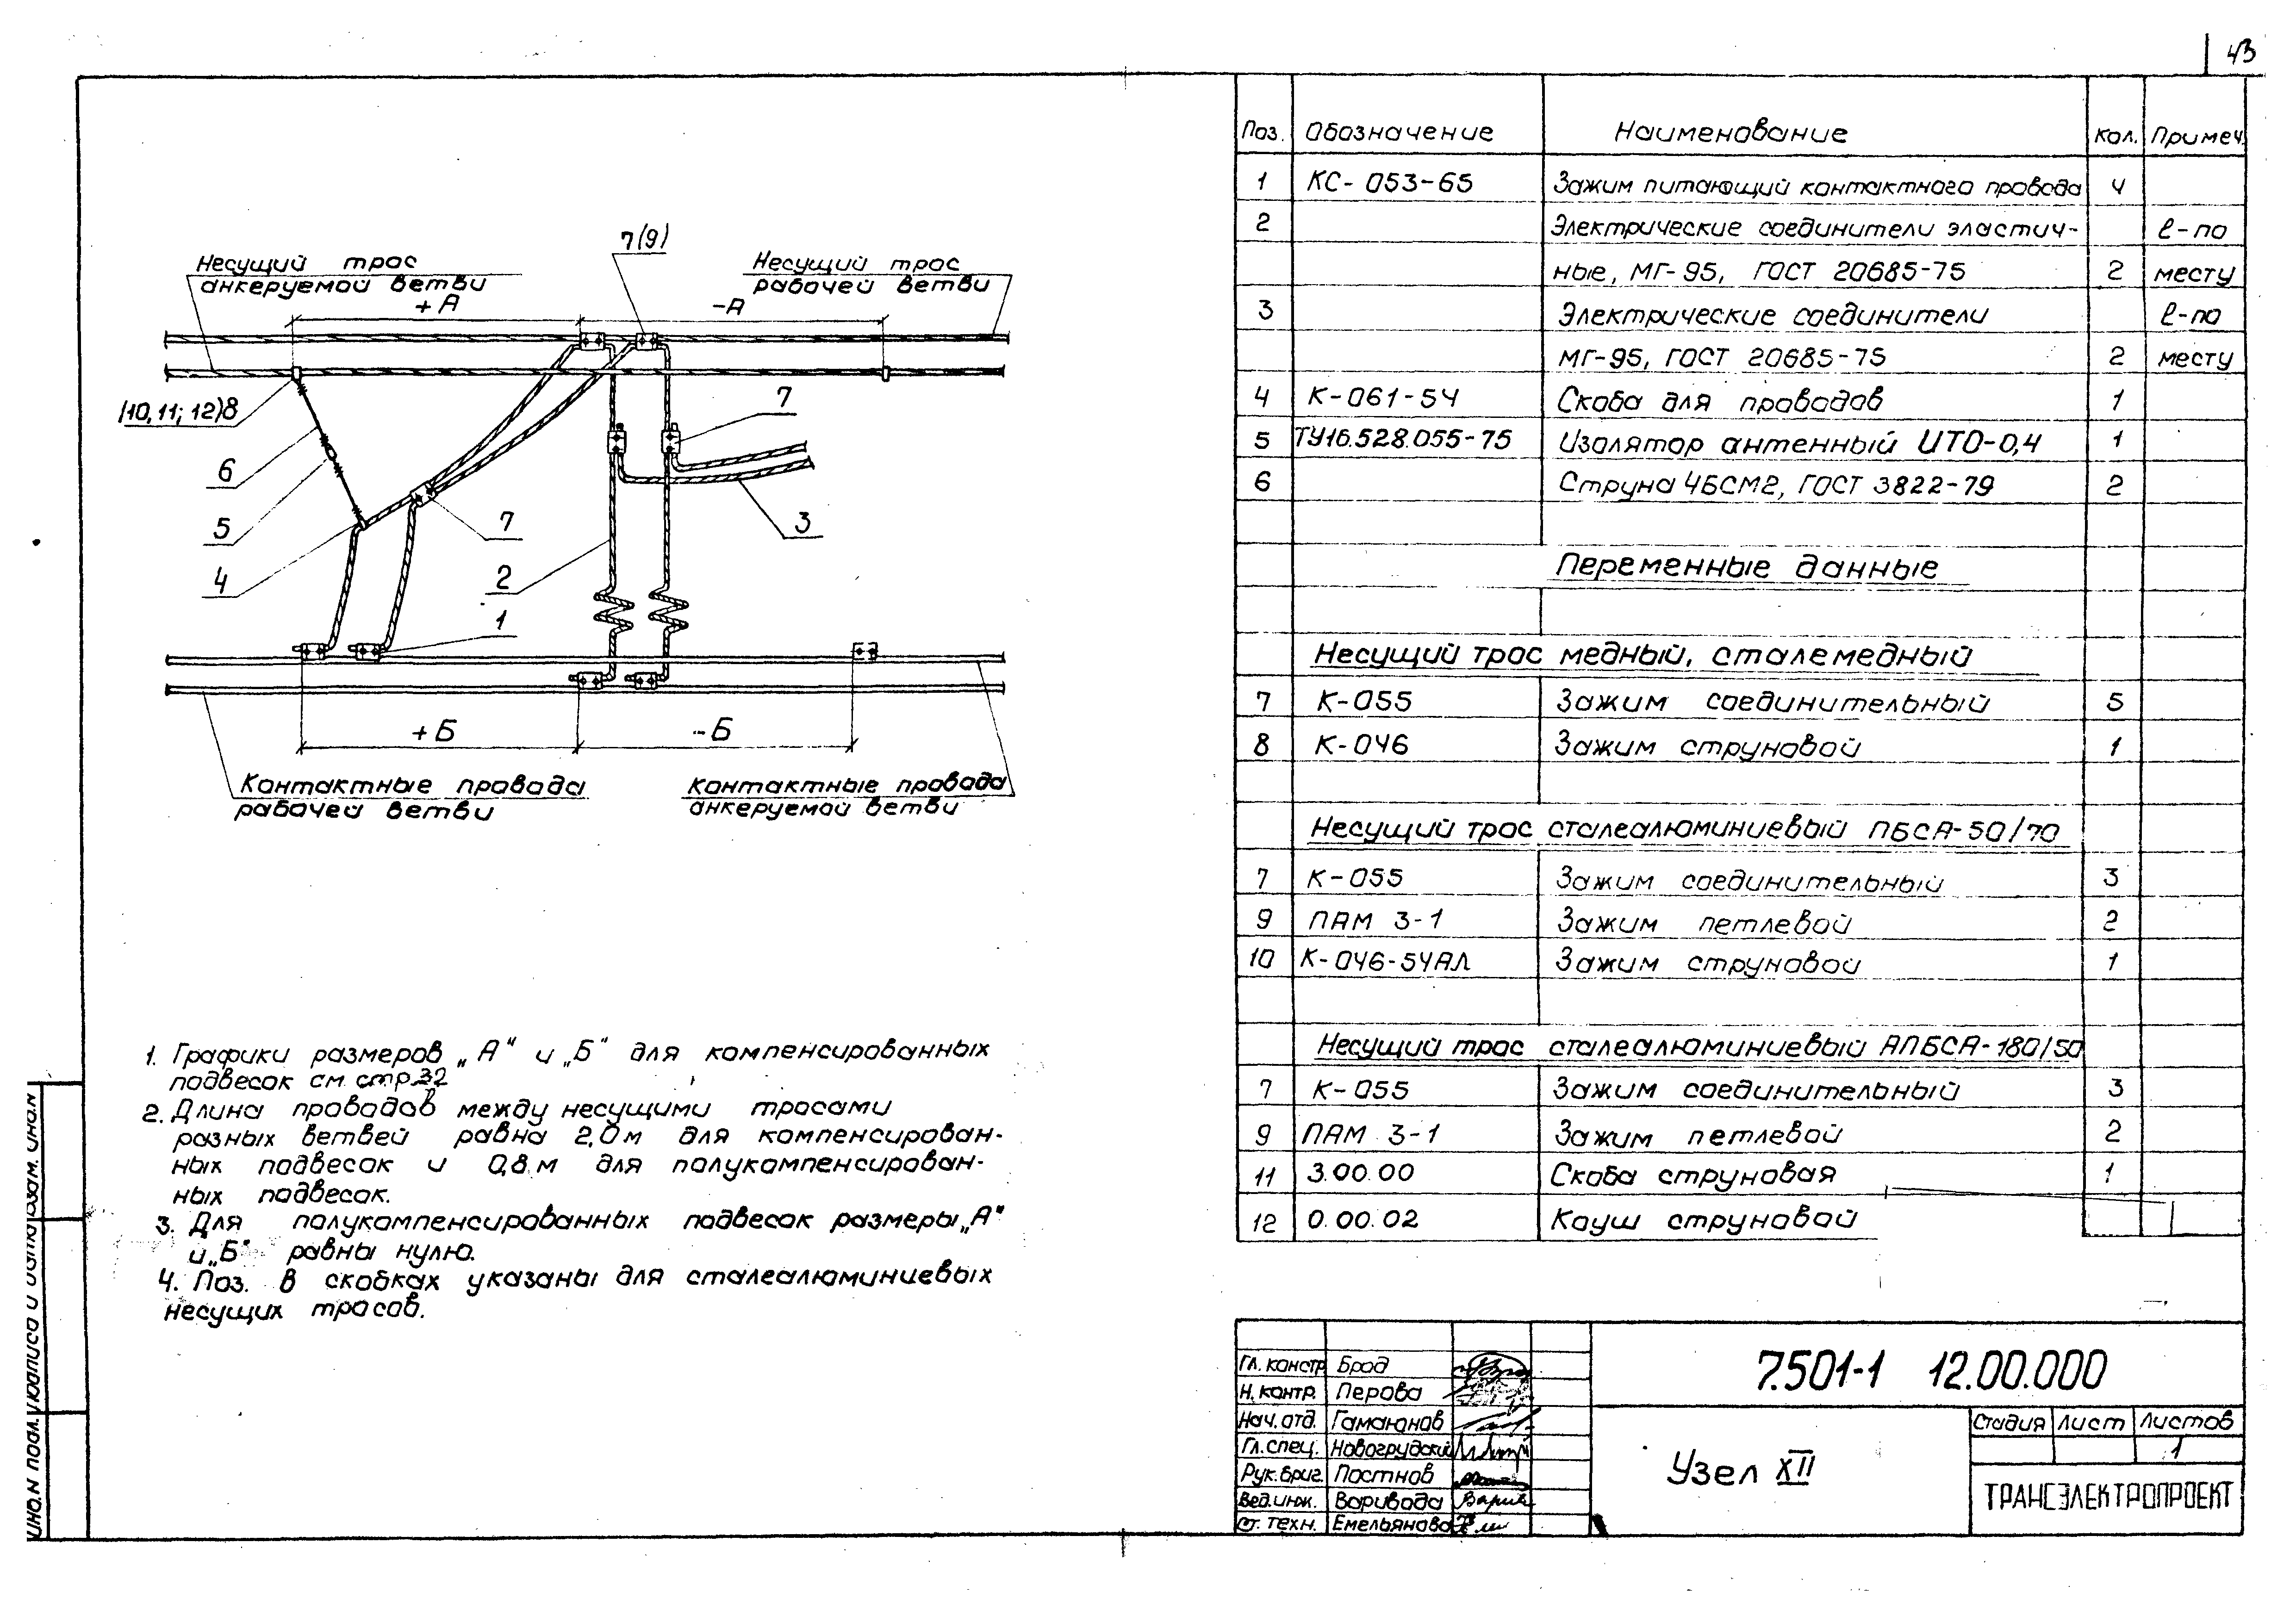 43
Несущий трос
анкеруемой ветви
+А
7(9)
-А
Несущий трос
рабочей ветви
(10,11; 12)8
7
6
5
7
3
4
2
1
+Б
-Б
Контактные провода
рабочей ветви
Контактные провода
анкеруемой ветви
1. Графики размеров „А" и „Б" для компенсированных
подвесок см. стр.32
2. Длина проводов между несущими тросами
разных ветвей равна 2,0м для компенсирован-
ных подвесок и 0,8 м для полукомпенсирован-
ных подвесок.
3. Для полукомпенсированных подвесок размеры „А"
и „Б" равны нулю.
4. Поз. в скобках указаны для сталеалюминиевых
несущих тросов.
Поз. Обозначение Наименование Кол. Примеч.
1 КС-053-65 Зажим питающий контактного провода 4
2 Электрические соединители эластич- ℓ-по
ные, МГ-95, ГОСТ 20685-75 2 месту
3 Электрические соединители ℓ-по
МГ-95, ГОСТ 20685-75 2 месту
4 К-061-54 Скоба для проводов 1
5 ТУ16.528.055-75 Изолятор антенный ИТО-0,4 1
6 Струна 4БСМ2, ГОСТ 3822-79 2
Переменные данные
Несущий трос медный, сталемедный
7 К-055 Зажим соединительный 5
8 К-046 Зажим струновой 1
Несущий трос сталеалюминиевый ПБСА-50/70
7 К-055 Зажим соединительный 3
9 ПАМ 3-1 Зажим петлевой 2
10 К-046-54АЛ Зажим струновой 1
Несущий трос сталеалюминиевый АПБСА-180/50
7 К-055 Зажим соединительный 3
9 ПАМ 3-1 Зажим петлевой 2
11 3.00.00 Скоба струновая 1
12 0.00.02 Коуш струновой
Гл. констр. Брод
Н. контр. Перова
Нач. отд. Гамаюнов
Гл. спец. Новогрудский
Рук. бриг. Постнов
Вед. инж. Варивода
Ст. техн. Емельянова
7.501-1 12.00.000
Узел XII
Стадия Лист Листов
1
ТРАНСЭЛЕКТРОПРОЕКТ
Инв.N подл.